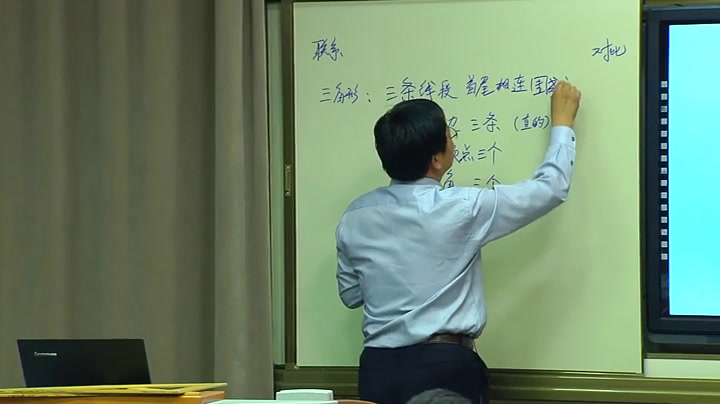 联系
对比
三角形：三条线段 首尾相连 围
边 三条 (直的)
顶点三个
角 三个
lenovo